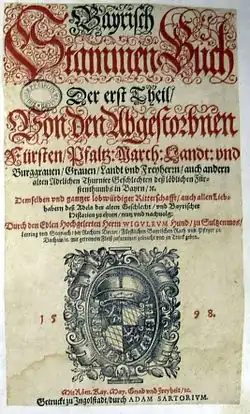 Bayrisch
Stammen Buch
Der erst Theil/
Von den Abgestorbnen
Fürsten/ Pfaltz: March: Landt: vnd
Burggrauen/ Grauen/ Landt vnd Freyherrn/ auch andern
alten Adelichen Thurnier Geschlechten deß löblichen Für-
stenthumbs in Bayrn/ ꝛc.
Demselben vnd gantzer lobwürdiger Ritterschafft/ auch allen Lieb-
habern deß Adels der alten Geschlecht/ vnd Bayrischer
Historien zu ehren/ nutz vnd
Durch den Edlen Hochgelerten Herrn WIGVLEVM Hund/ zu Sultzenmos/
vnd Bayrischen Rath vnd Pfleger zu
Dachaw/ ꝛc. mit getrewem Fleiß zusammen gebracht vnd in Truck geben.
15 98.
Mit Röm. Kay. May. Gnad vnd Freyheit/ ꝛc.
Getruckt zu Ingolstadt/ durch ADAM SARTORIVM.